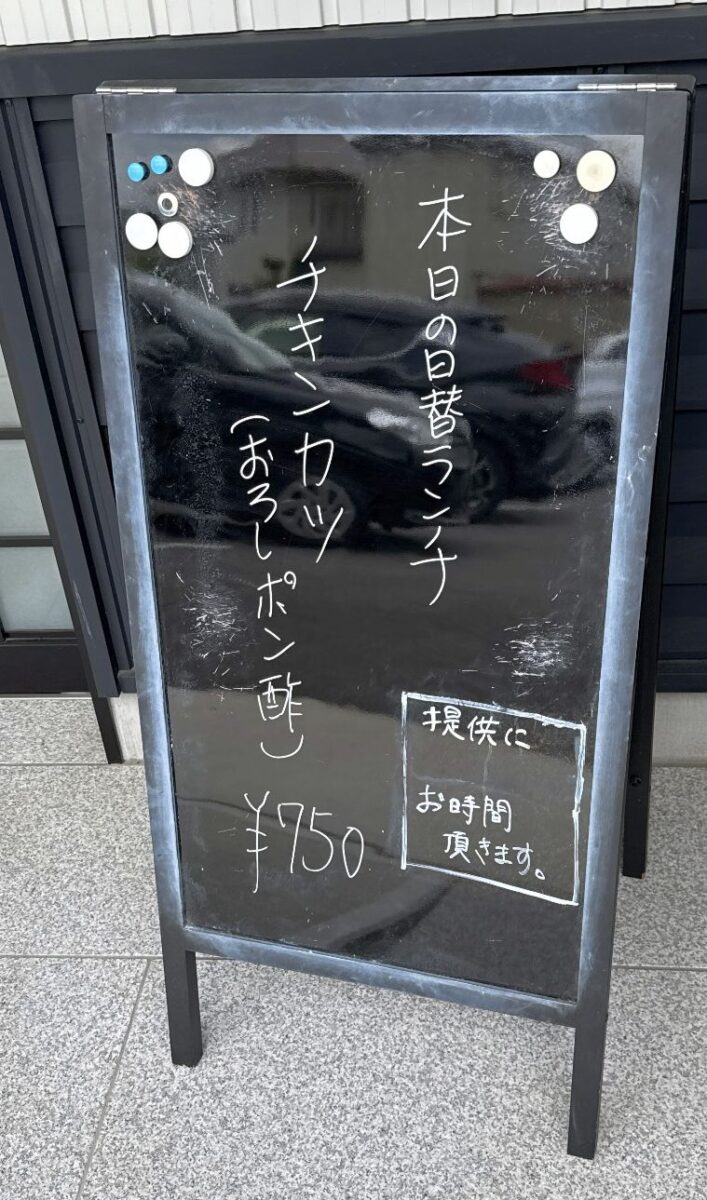 本日の日替ランチ
チキンカツ
(おろしポン酢)
¥750
提供に
お時間
頂きます。